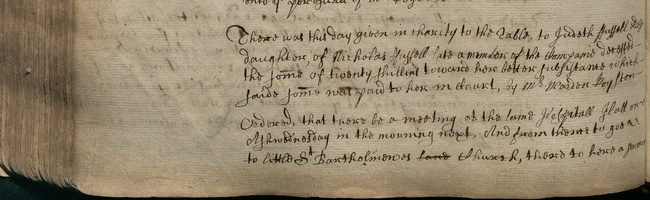 There was this day given in charity to the Table, to Judeth Fussell
daughter, of Nicholas Fussell late a member of the Companie deceased
the some of twenty shillins toward her better subsistance which
saide some was paid to her in Court, by Mr Warden
Ordered, that there be a meeting at the lame Hospitall Hall on
Ashwednesday in the morning next, And from thence to goe
to little St Bartholmewes lane Church, there to heare a